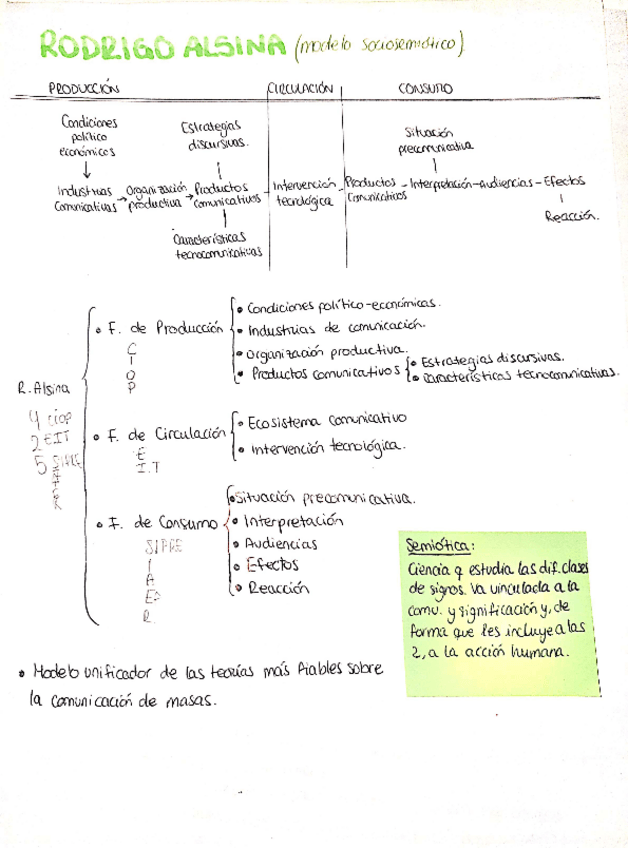 RODRIGO ALSINA (modelo sociosemiótico)
PRODUCCIÓN CIRCULACIÓN CONSUMO
Condiciones
político
económicos
Estrategias
discursivas.
Situación
precomunicativa
Industrias
Comunicativas → Organización
productiva → Productos
comunicativos - Intervención
tecnológica - Productos
comunicativos - Interpretación - Audiencias - Efectos
Reacción.
Características
tecnocomunicativas
R. Alsina
4 CIOP
2 EIT
5 SIPRE
I
A
E
R
• F. de Producción
C
I
O
P
• Condiciones político-económicas.
• Industrias de comunicación.
• Organización productiva.
• Productos comunicativos
• Estrategias discursivas.
• Características tecnocomunicativas.
• F. de Circulación
E
I.T
• Ecosistema comunicativo
• Intervención tecnológica.
• F. de Consumo
SIPRE
I
A
E
R
• Situación precomunicativa.
• Interpretación
• Audiencias
• Efectos
• Reacción
Semiótica:
Ciencia q estudia las dif. clases
de signos. Va vinculada a la
comu. y significación y, de
forma que les incluye a las
2, a la acción humana.
• Modelo unificador de las teorías más fiables sobre
la comunicación de masas.